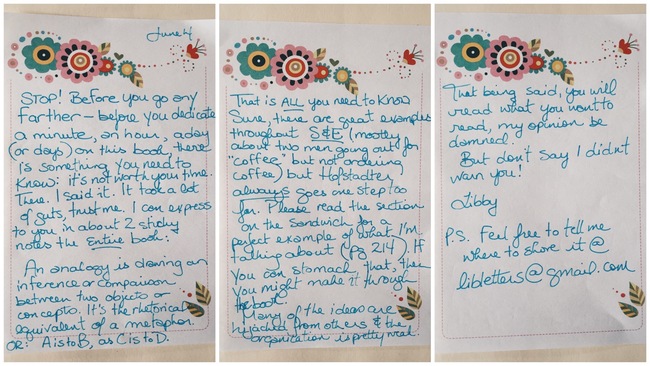 June 4
STOP! Before you go any
farther – before you dedicate
a minute, an hour, a day
(or days) on this book, there
is something you need to
know: it's not worth your time.
There. I said it. It took a lot
of guts, trust me. I can express
to you in about 2 sticky
notes the entire book:
An analogy is drawing an
inference or comparison
between two objects or
concepts. It's the rhetorical
equivalent of a metaphor.
OR: A is to B, as C is to D.
That is ALL you need to know
Sure, there are great examples
throughout S&E (mostly
about two men going out for
"coffee," but not ordering
coffee) but Hofstadter
always goes one step too
far. Please read the section
on the sandwich for a
perfect example of what I'm
talking about (pg 214). If
you can stomach that, then
you might make it through
the book.
Many of the ideas are
hijacked from others & the
organization is pretty
That being said, you will
read what you want to
read, my opinion be
damned.
But don't say I didn't
warn you!
Libby
P.S. Feel free to tell me
where to shove it @
libletters@gmail.com